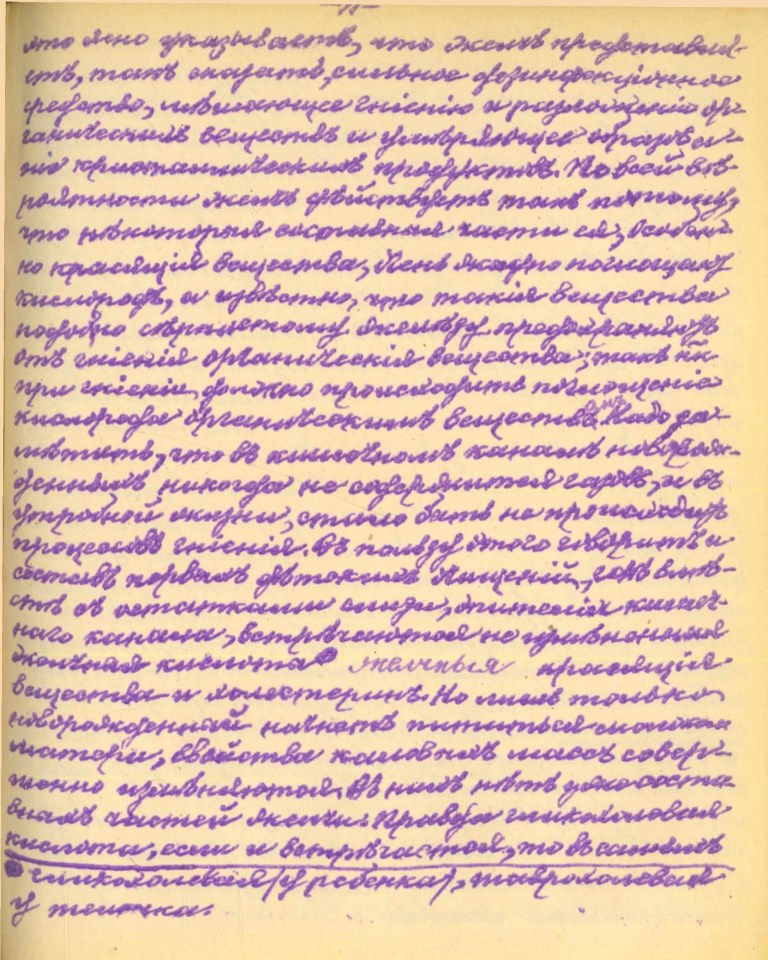 это ясно указываетъ, что желчь представля-
етъ, такъ сказать, сильное дезинфекціонное
средство, мѣшающее гніенію и разложенію ор-
ганическихъ веществъ и умѣряющее образова-
ніе кристаллическихъ продуктовъ. По всей вѣ-
роятности желчь дѣйствуетъ такъ потому,
что нѣкоторыя составныя части ея, особен-
но красящія вещества, очень жадно поглощаютъ
кислородъ, а извѣстно, что такія вещества
подобно сѣрнистому желѣзу предохраняютъ
отъ гніенія органическія вещества, такъ какъ
при гніеніи должно происходить поглощеніе
кислорода органическимъ веществомъ. Надо за-
мѣтить, что въ кишечномъ каналѣ новорож-
денныхъ никогда не содержится газовъ, и въ
утробной жизни, стало быть не происходитъ
процессовъ гніенія. Въ пользу этого говоритъ и
составъ первыхъ дѣтскихъ испраженій, гдѣ вмѣ-
стѣ съ остатками слизи, эпителія кишеч-
наго канала, встрѣчаются не измѣненныя
желчная кислота желчныя красящія
вещества и холестеринъ. Но лишь только
новорожденный начнетъ питаться молокомъ
матери, свойства каловыхъ массъ совер-
шенно измѣняются. Въ нихъ нѣтъ уже соста-
вныхъ частей желчи. Правда гликохолевая
кислота, если и встрѣчается, то въ самыхъ
гликохолевая (у ребенка), таврохолевая
у теленка.